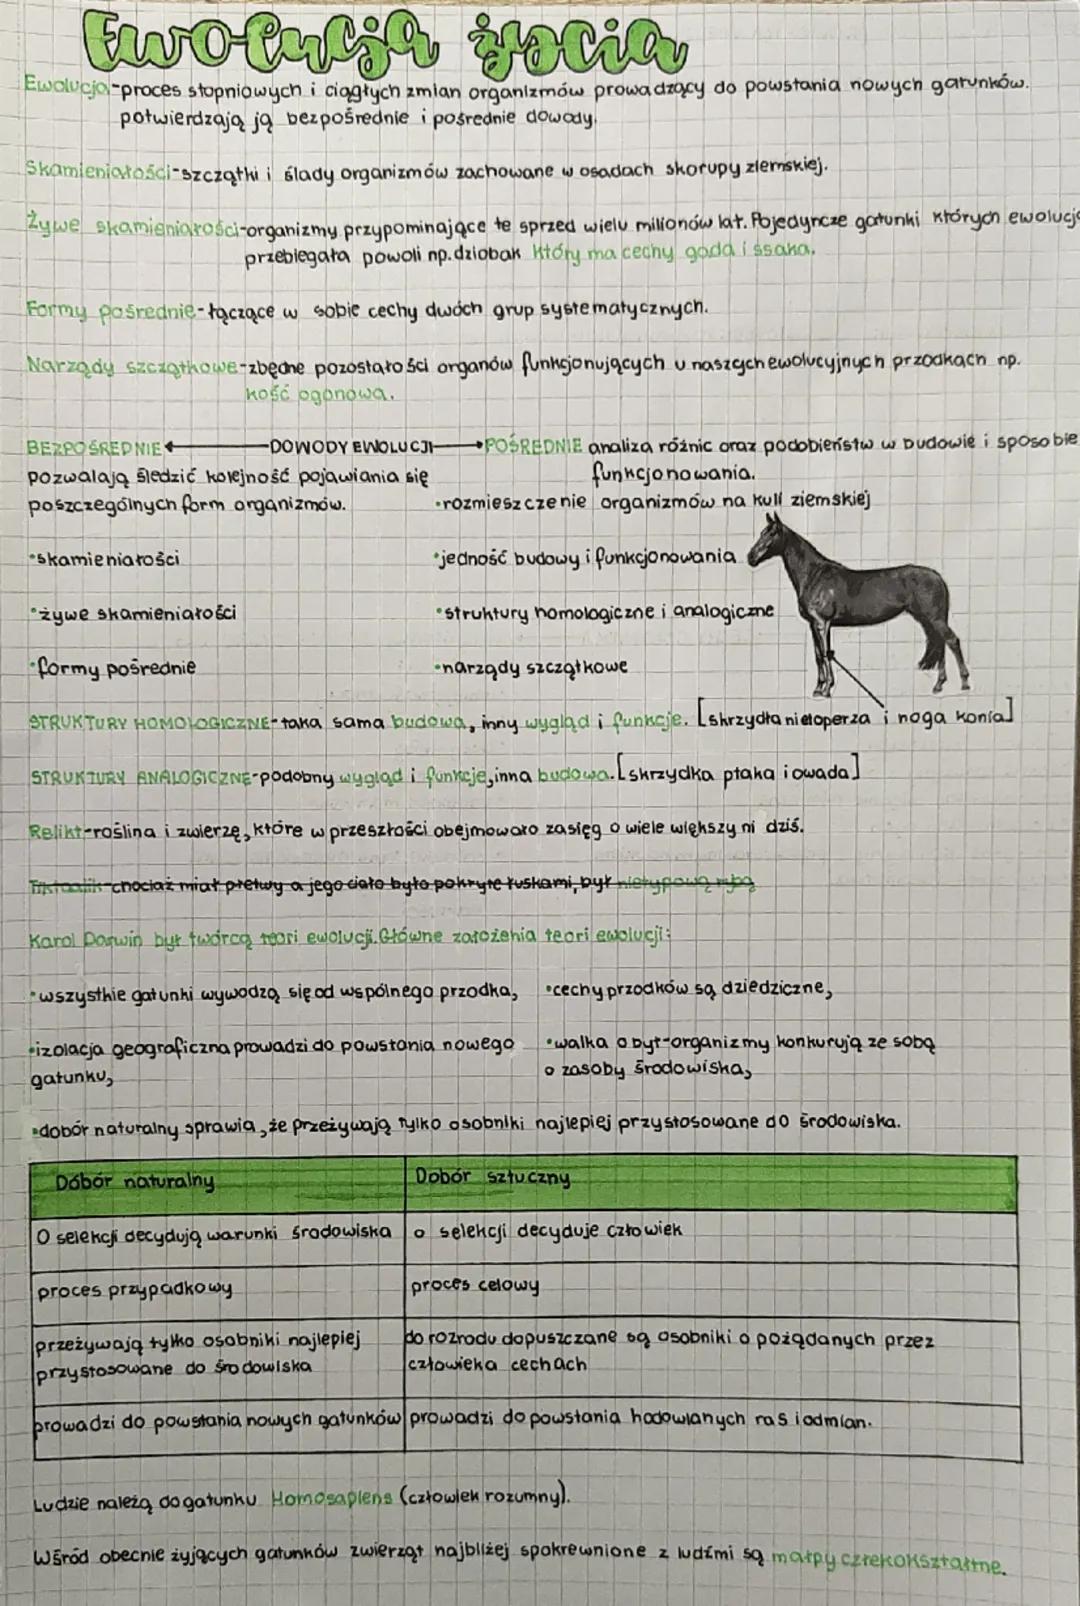 Ewolucja życia
Ewolucja-proces stopniowych i ciągłych zmian organizmów prowadzący do powstania nowych gatunków.
potwierdzają ją bezpośrednie i pośrednie dowody.
Skamieniałości-szczątki i ślady organizmów zachowane w osadach skorupy ziemskiej.
Żywe skamieniałości-organizmy przypominające te sprzed wielu milionów lat. Pojedyncze gatunki których ewolucja
przebiegała powoli np. dziobak który ma cechy gada i ssaka.
Formy pośrednie-łączące w sobie cechy dwóch grup systematycznych.
Narządy szczątkowe-zbędne pozostałości organów funkcjonujących u naszych ewolucyjnych przodkach np.
kość ogonowa.
BEZPOŚREDNIE ← DOWODY EWOLUCJI → POŚREDNIE analiza różnic oraz podobieństw w budowie i sposobie
pozwalają śledzić kolejność pojawiania się funkcjonowania.
poszczególnych form organizmów. •rozmieszczenie organizmów na kuli ziemskiej
•skamieniałości •jedność budowy i funkcjonowania
•żywe skamieniałości •struktury homologiczne i analogiczne
•formy pośrednie •narządy szczątkowe
STRUKTURY HOMOLOGICZNE-taka sama budowa, inny wygląd i funkcje. [skrzydła nietoperza i noga konia]
STRUKTURY ANALOGICZNE-podobny wygląd i funkcje, inna budowa. [skrzydka ptaka i owada]
Relikt-roślina i zwierzę, które w przeszłości obejmowało zasięg o wiele większy ni dziś.
Tiktaalik-chociaż miał płetwy a jego ciało było pokryte łuskami, był nietypową rybą
Karol Darwin był twórcą teori ewolucji. Główne założenia teori ewolucji:
•wszystkie gatunki wywodzą się od wspólnego przodka, •cechy przodków są dziedziczne,
•izolacja geograficzna prowadzi do powstania nowego •walka o byt-organizmy konkurują ze sobą
gatunku, o zasoby środowiska,
•dobór naturalny sprawia, że przeżywają tylko osobniki najlepiej przystosowane do środowiska.
Dobór naturalny Dobór sztuczny
O selekcji decydują warunki środowiska o selekcji decyduje człowiek
proces przypadkowy proces celowy
przeżywają tylko osobniki najlepiej do rozrodu dopuszczane są osobniki o pożądanych przez
przystosowane do środowiska człowieka cechach
prowadzi do powstania nowych gatunków prowadzi do powstania hodowlanych ras i odmian.
Ludzie należą do gatunku Homosapiens (człowiek rozumny).
Wśród obecnie żyjących gatunków zwierząt najbliżej spokrewnione z ludźmi są małpy człekokształtne.